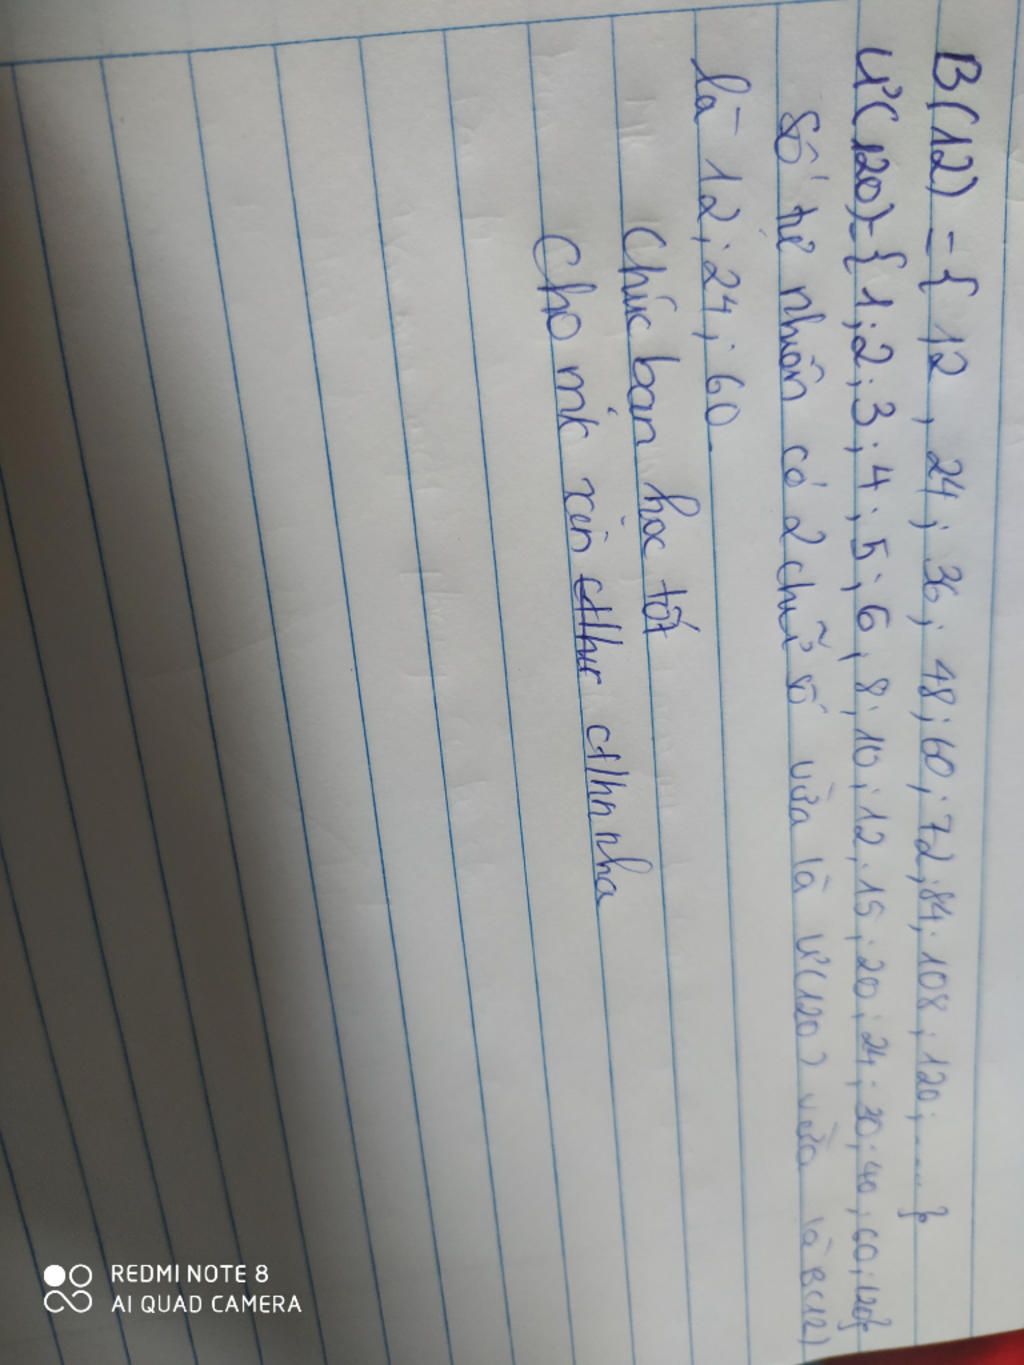 B(12) = { 12, 24; 36; 48; 60; 72; 84; 108; 120; ..... }
Ư(120)={ 1; 2; 3; 4; 5; 6; 8; 10; 12; 15; 20; 24; 30; 40; 60; 120}
Số tự nhiên có 2 chữ số vừa là Ư(120) vừa là B(12)
là 12; 24; 60.
Chúc bạn học tốt
Cho mk xin nha
REDMI NOTE 8
AI QUAD CAMERA